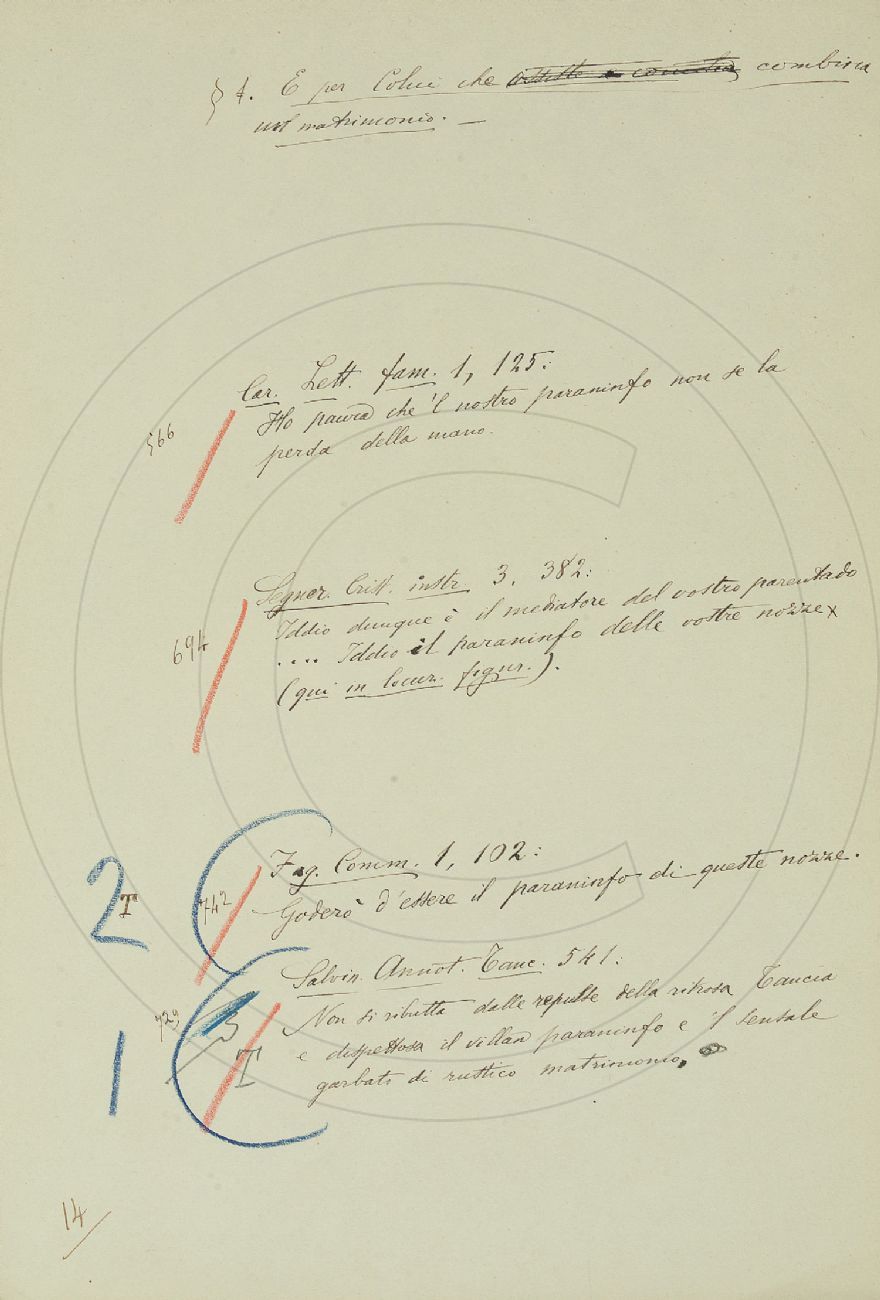 § 4. E per Colui che combina
un matrimonio. —
Car. Lett. fam. 1, 125:
Ho paura che 'l nostro paraninfo non se la
566
perda della mano.
Segner. Crist. instr. 3. 382:
Iddio dunque è il mediatore del vostro parentado
694
.... Iddio il paraninfo delle vostre nozze
(qui in locuz. figur.).
Fag. Comm. 1, 102:
2 T 742
Goderò d'essere il paraninfo di queste nozze.
Salvin. Annot. Tanc. 541:
Non si ributta dalle repulse della ritrosa Tancia
729
e dispettosa il villan paraninfo e 'l sensale
3
T
1
garbato di rustico matrimonio.
14